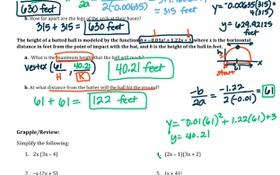 630 feet
2a
2(-0.00635)
= 315 feet
y = -0.00635(315)²
+ 4(315)
y = 629.92125
feet
b. How far apart are the legs of the arch at their bases?
315 + 315 = 630 feet
The height of a batted ball is modeled by the function h = -0.01x² + 1.22x + 3, where x is the horizontal
distance in feet from the point of impact with the bat, and h is the height of the ball in feet.
a. What is the maximum height that the ball will reach?
vertex (61, 40.21)
H K
40.21 feet
start
b. At what distance from the batter will the ball hit the ground?
61 + 61 = 122 feet
-b/2a = -1.22/2(-0.01) = 61
y = -0.01(61)² + 1.22(61) + 3
y = 40.21
Grapple/Review:
Simplify the following:
1. 2x (3x – 4)
4. (2x – 1)(3x + 2)
2. -x (2x + 5)
5. (x + 4)²